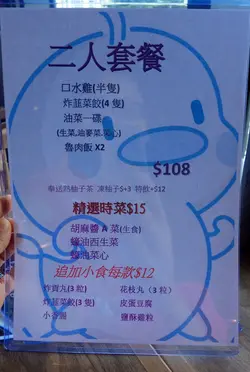 二人套餐
口水雞(半隻)
炸韮菜餃(4隻)
油菜一碟
(生菜,油麥菜,菜心)
魯肉飯 X2
$108
奉送熱柚子茶 凍柚子$+3 特飲+$12
精選時菜$15
胡麻醬 A 菜(生食)
蠔油西生菜
蠔油菜心
追加小食每款$12
炸貢丸(3粒) 花枝丸(3粒)
炸韮菜餃(3隻) 皮蛋豆腐
鹽酥雞粒